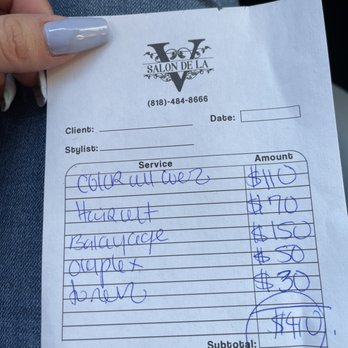 V
SALON DE LA
(818)-484-8666
Date:
Client:
Stylist:
Service Amount
Color all over $110
Haircut $70
Balayage $150
Olaplex $50
toner $30
Subtotal: $410